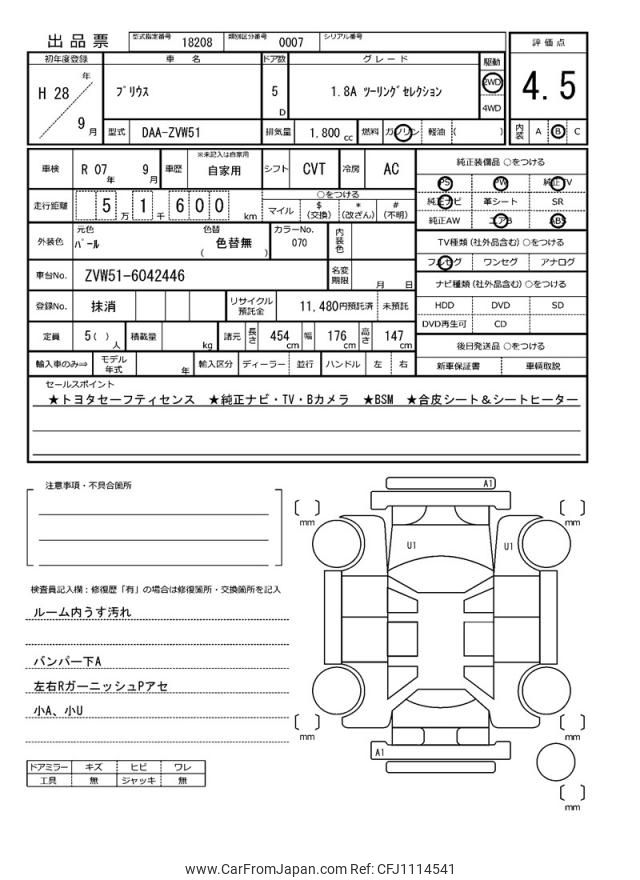 出品票 型式指定番号 18208 類別区分番号 0007 シリアル番号
初年度登録 車 名 ドア数 グレード 駆動 評価点
H 28 年 9 月 プリウス 5 D 1.8A ツーリングセレクション 2WD 4WD 4.5
型式 DAA-ZVW51 排気量 1,800 cc 燃料 ガソリン 軽油 ( ) 内装 A B C
車検 R 07 年 9 月 車歴 ※未記入は自家用 自家用 シフト CVT 冷房 AC
純正装備品 ○をつける
PS PW 純正TV
純正ナビ 革シート SR
純正AW エアB ABS
走行距離 5 万 1 千 6 0 0 km ○をつける
マイル $ (交換) * (改ざん) # (不明)
外装色 元色 パール 色替 ( 色替無 ) カラーNo. 070 内装色
TV種類 (社外品含む) ○をつける
フルセグ ワンセグ アナログ
車台No. ZVW51-6042446 名変期限 月 日
ナビ種類 (社外品含む) ○をつける
HDD DVD SD
DVD再生可 CD
登録No. 抹消 リサイクル預託金 11,480円預託済 未預託
定員 5( ) 人 積載量 kg 諸元 長さ 454 cm 幅 176 cm 高さ 147 cm
後日発送品 ○をつける
新車保証書 車輌取説
輸入車のみ⇒ モデル年式 年 輸入区分 ディーラー 並行 ハンドル 左 右
セールスポイント
★トヨタセーフティセンス ★純正ナビ・TV・Bカメラ ★BSM ★合皮シート＆シートヒーター
注意事項・不具合箇所
検査員記入欄：修復歴「有」の場合は修復箇所・交換箇所を記入
ルーム内うす汚れ
バンパー下A
左右RガーニッシュPアセ
小A、小U
ドアミラー キズ ヒビ ワレ
工具 無 ジャッキ 無
A1
mm mm
U1 U1
mm mm
A1
mm
www.CarFromJapan.com Ref: CFJ1114541